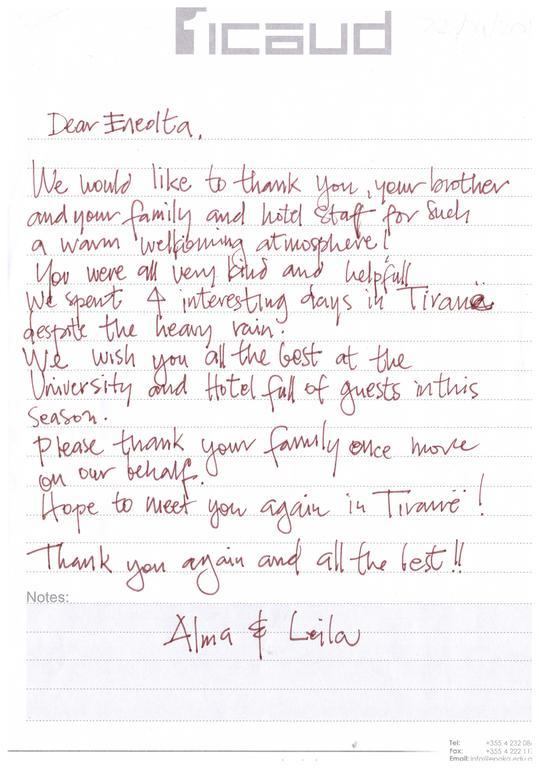 1icaud
Dear Eneolta,
We would like to thank you, your brother
and your family and hotel staff for such
a warm wellcoming atmosphere!
You were all very kind and helpfull
We spent 4 interesting days in Tiranë
despite the heavy rain.
We wish you all the best at the
University and Hotel full of guests in this
season.
Please thank your family once more
on our behalf.
Hope to meet you again in Tiranë!
Thank you again and all the best!!
Notes:
Alma & Leila
Tel: +355 4 232 08
Fax: +355 4 222 11
Email: info@epoka.edu.a